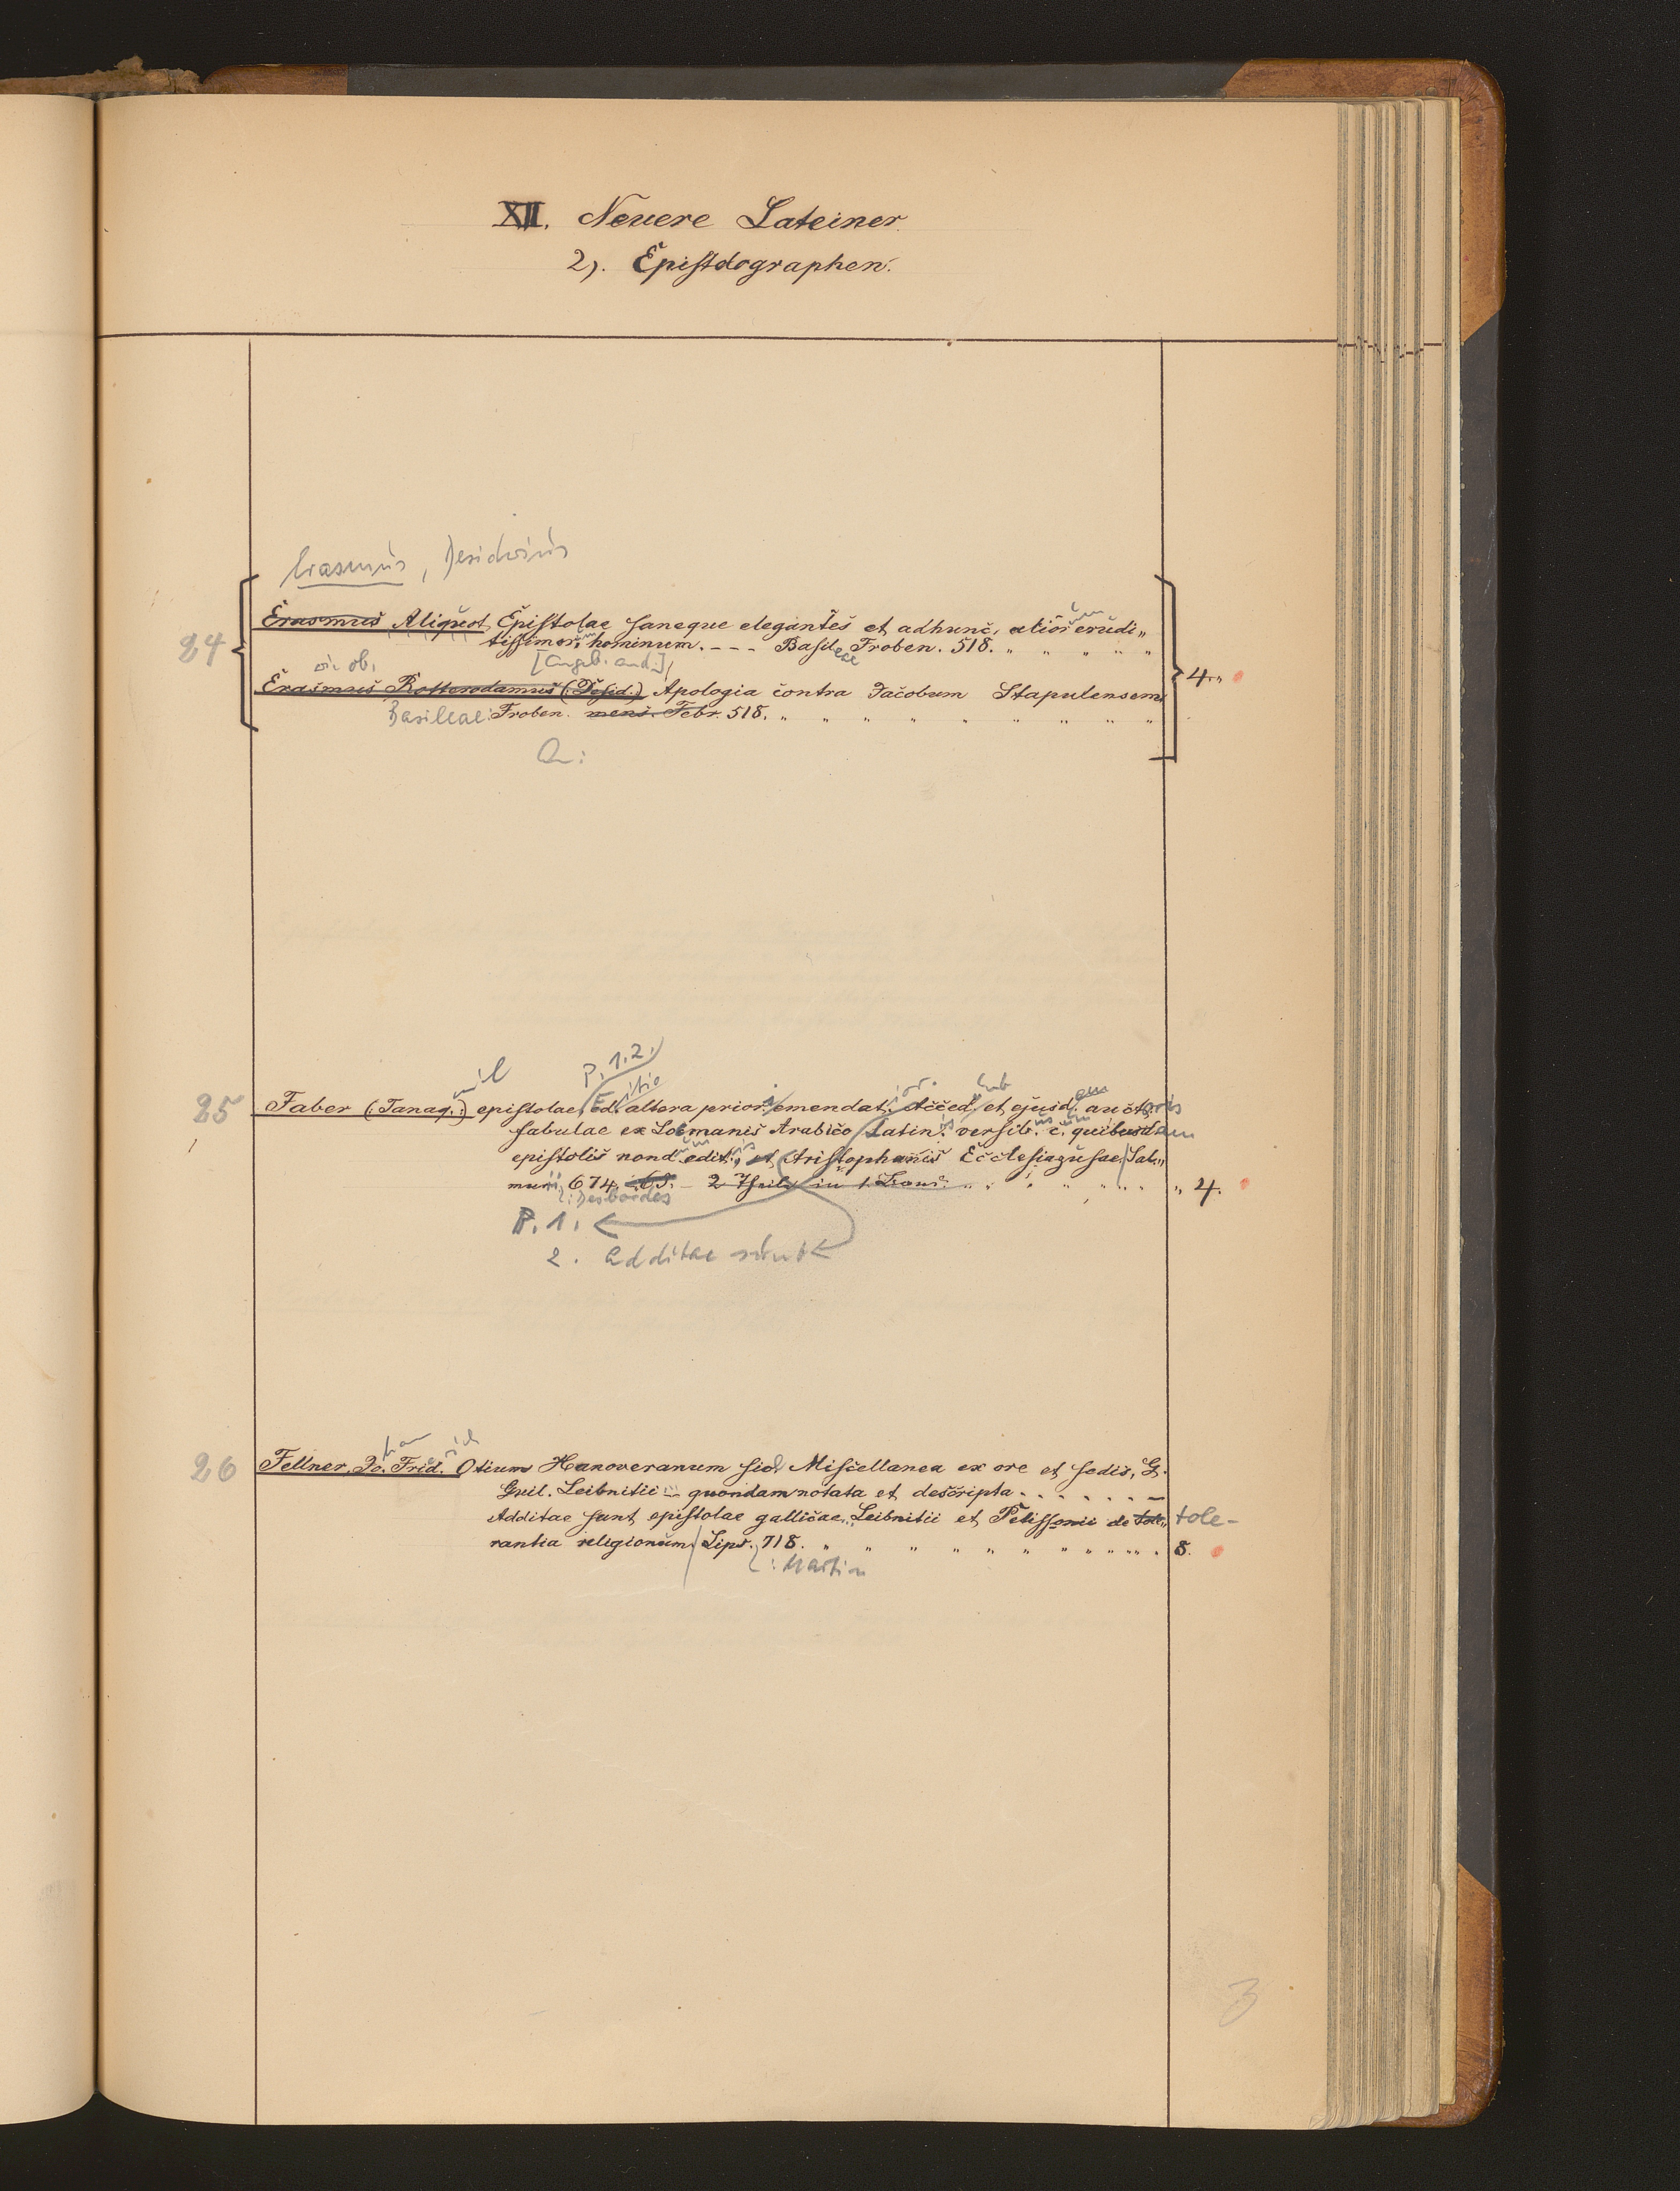 XII. Neuere Lateiner.
2). Epistolographen.
Erasmus, Desiderius
24
Erasmus Aliquot Epistolae saneque elegantes et adhunc, alior um erudi„
tissimor. hominum. - - - Basileae Froben. 518. „ „ „ „ „
ob. [angeb. and.]
Erasmus Rotterodamus (: Desid.) Apologia contra Jacobum Stapulensem 4. „
Basileae: Froben. mens. Febr. 518. „ „ „ „ „ „ „ „ „
P. 1.2.
25 Faber (: Tanaq. :) uil epistolae, Editio altera priori emendatior. Acced. et ejusd. auctoris
fabulae ex Locmanis Arabico Latinis versib. c. quibusdam
epistolis nondum editis, et Aristophanis Ecclesiazusae, Sal„
murii 674. - 2 Theile in 1 Band. „ „ „ „ „ „ „ 4.
: Desbordes
P. 1.
2. additae sunt
26 Fellner, Jo. Frid. Otium Hanoveranum sive Miscellanea ex ore et sedis, G.
Guil. Leibnitii - quondam notata et descripta . . . . . . —
Additae sunt epistolae gallicae, Leibnitii et Pelissonii de tole„ tole-
rantia religionum, Lips. 718. „ „ „ „ „ „ „ „ „ 8.
: Martin
3